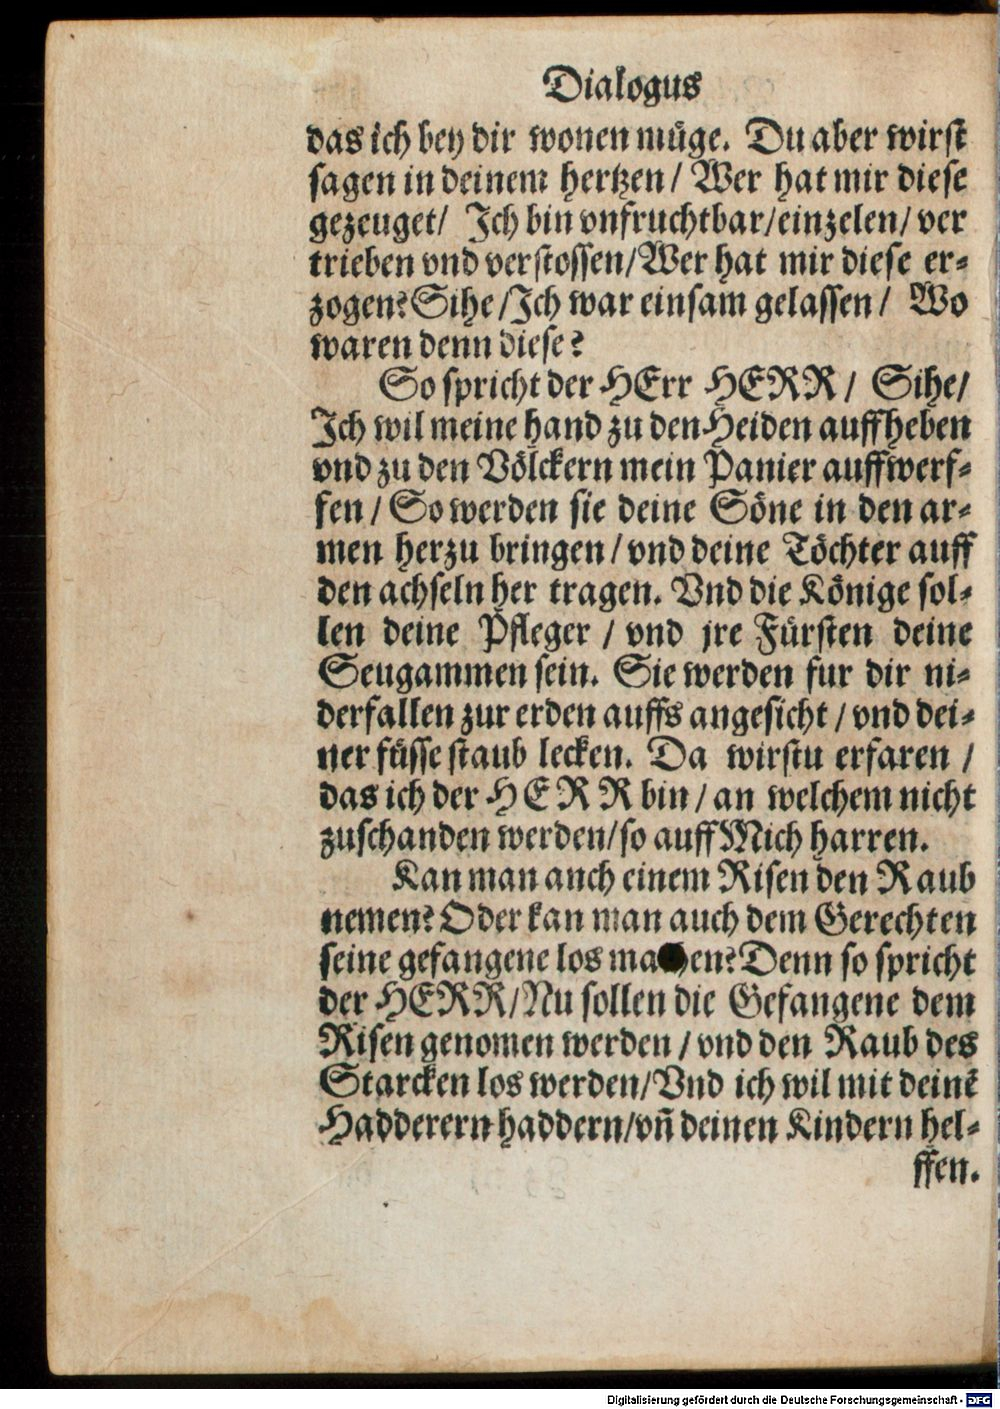 Dialogus
das ich bey dir wonen müge. Du aber wirst
sagen in deinem hertzen/ Wer hat mir diese
gezeuget/ Ich bin vnfruchtbar/einzelen/ ver
trieben vnd verstossen/Wer hat mir diese er-
zogen? Sihe/Ich war einsam gelassen/ Wo
waren denn diese?
So spricht der HErr HERR/ Sihe/
Ich wil meine hand zu den Heiden auffheben
vnd zu den Völckern mein Panier auffwerf-
fen/ So werden sie deine Söne in den ar-
men herzu bringen/ vnd deine Töchter auff
den achseln her tragen. Vnd die Könige sol-
len deine Pfleger/ vnd jre Fürsten deine
Seugammen sein. Sie werden fur dir ni-
derfallen zur erden auffs angesicht/ vnd dei-
ner füsse staub lecken. Da wirstu erfaren/
das ich der HERR bin/ an welchem nicht
zuschanden werden/so auff Mich harren.
Kan man auch einem Risen den Raub
nemen? Oder kan man auch dem Gerechten
seine gefangene los machen? Denn so spricht
der HERR/Nu sollen die Gefangene dem
Risen genomen werden/ vnd den Raub des
Starcken los werden/Vnd ich wil mit deinē
Hadderern haddern/vñ deinen Kindern hel-
ffen.
Digitalisierung gefördert durch die Deutsche Forschungsgemeinschaft - DFG